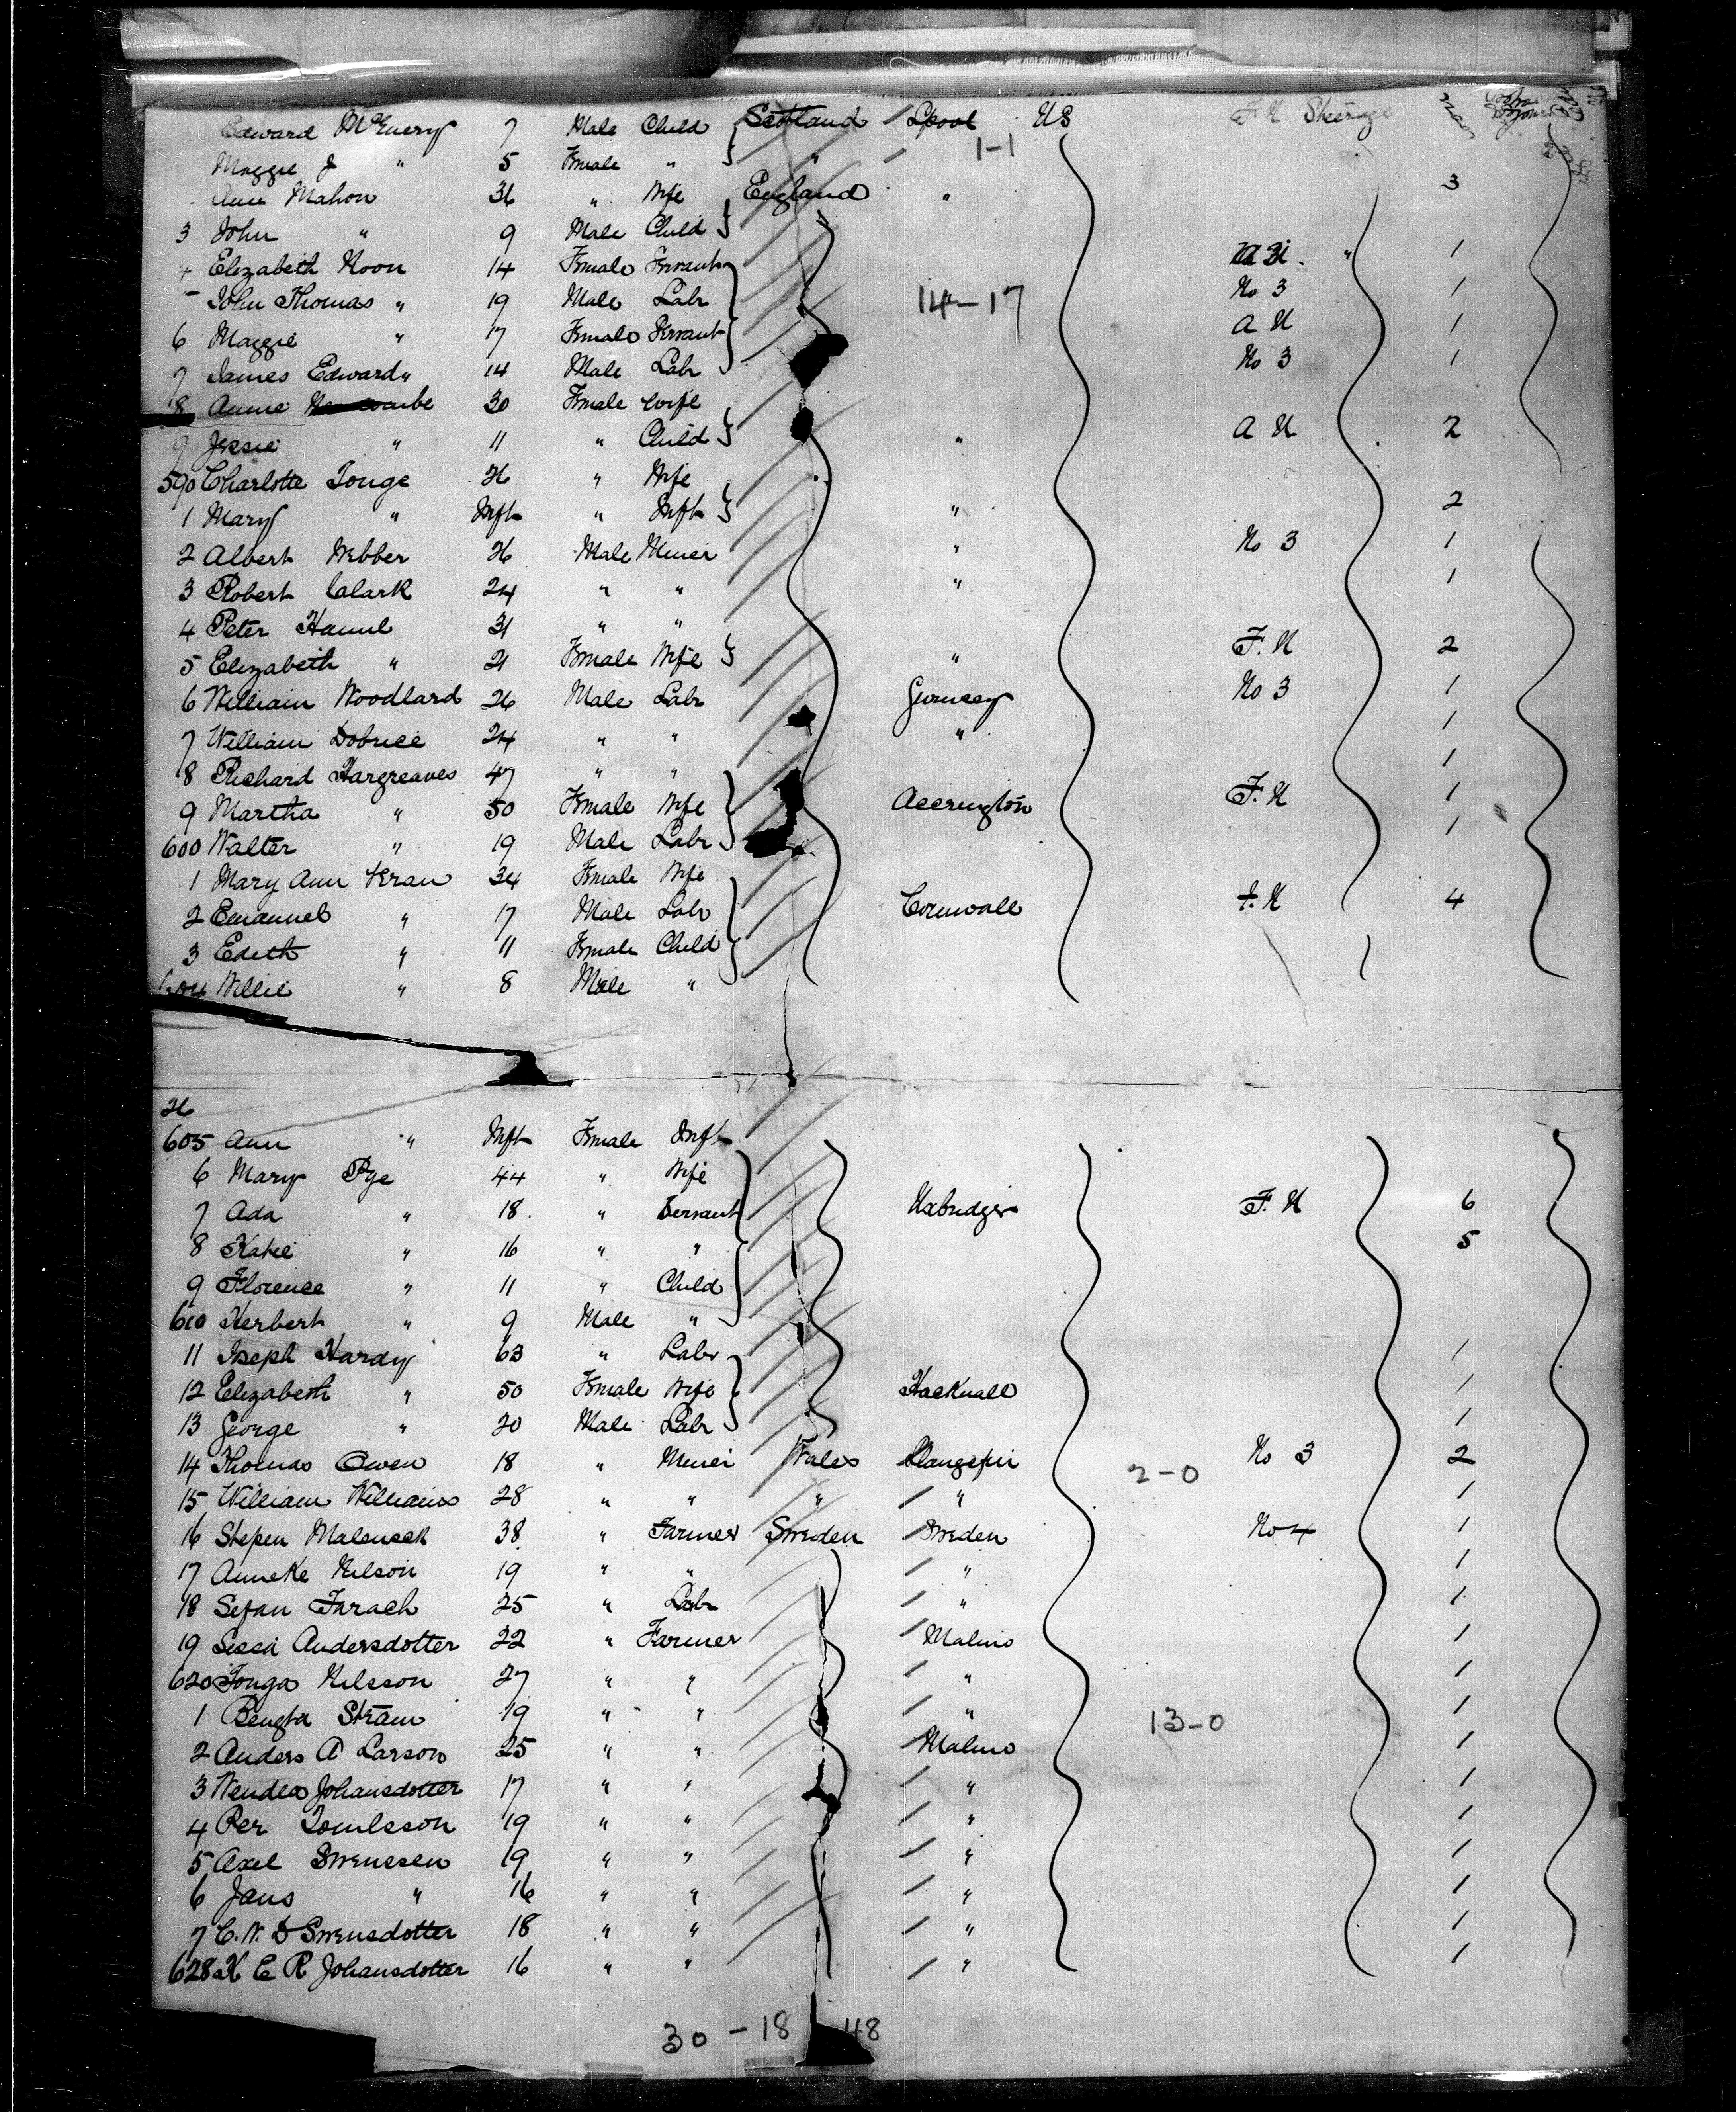 Edward McEnery 7 Male Child Scotland Lpool US F U Steerage
Maggie J " 5 Female " " 1-1
Ann Mahon 36 " Wife England " 3
3 John " 9 Male Child
4 Elizabeth Noon 14 Female Servant " 1
5 John Thomas " 19 Male Labr 14-17 No 3 1
6 Maggie " 17 Female Servant A U 1
7 James Edward " 14 Male Labr No 3 1
8 Annie 30 Female Wife
9 Jessie " 11 " Child " A U 2
590 Charlotte Tonge 26 " Wife
1 Mary " Inft " Inft " 2
2 Albert Webber 26 Male Miner " No 3 1
3 Robert Clark 24 " " " 1
4 Peter Hamil 31 " "
5 Elizabeth " 21 Female Wife " F. U 2
6 William Woodlard 26 Male Labr Gurnsey No 3 1
7 William Dobree 24 " " " 1
8 Richard Hargreaves 47 " " 1
9 Martha " 50 Female Wife Accrington F. U 1
600 Walter " 19 Male Labr 1
1 Mary Ann Uran 34 Female Wife
2 Emanuel " 17 Male Labr Cornwall F. U 4
3 Edith " 11 Female Child
604 Willie " 8 Male "
26
605 Ann " Inft Female Inft
6 Mary Pye 44 " Wife
7 Ada " 18 " Servant Uxbridge F. U 6
8 Katie " 16 " " 5
9 Florence " 11 " Child
610 Herbert " 9 Male "
11 Joseph Hardy 63 " Labr 1
12 Elizabeth " 50 Female Wife Hacknall 1
13 George " 20 Male Labr 1
14 Thomas Owen 18 " Miner Wales Llangefni 2-0 No 3 2
15 William Williams 28 " " " " 1
16 Stepen Malensek 38 " Farmer Sweden Sweden No 4 1
17 Anneke Nilson 19 " " " 1
18 Sefan Farach 25 " Labr " 1
19 Sissa Andersdotter 22 " Farmer Malmo 1
620 Tonga Nilsson 27 " " " 1
1 Bengta Stram 19 " " " 13-0 1
2 Anders A Larson 25 " " Malmo 1
3 Wendla Johansdotter 17 " " " 1
4 Per Tomlsson 19 " " " 1
5 Axel Swenssen 19 " " " 1
6 Jans " 16 " " " 1
7 C. W. D Swensdotter 18 " " " 1
628 K E R Johansdotter 16 " " " 1
30 - 18 48